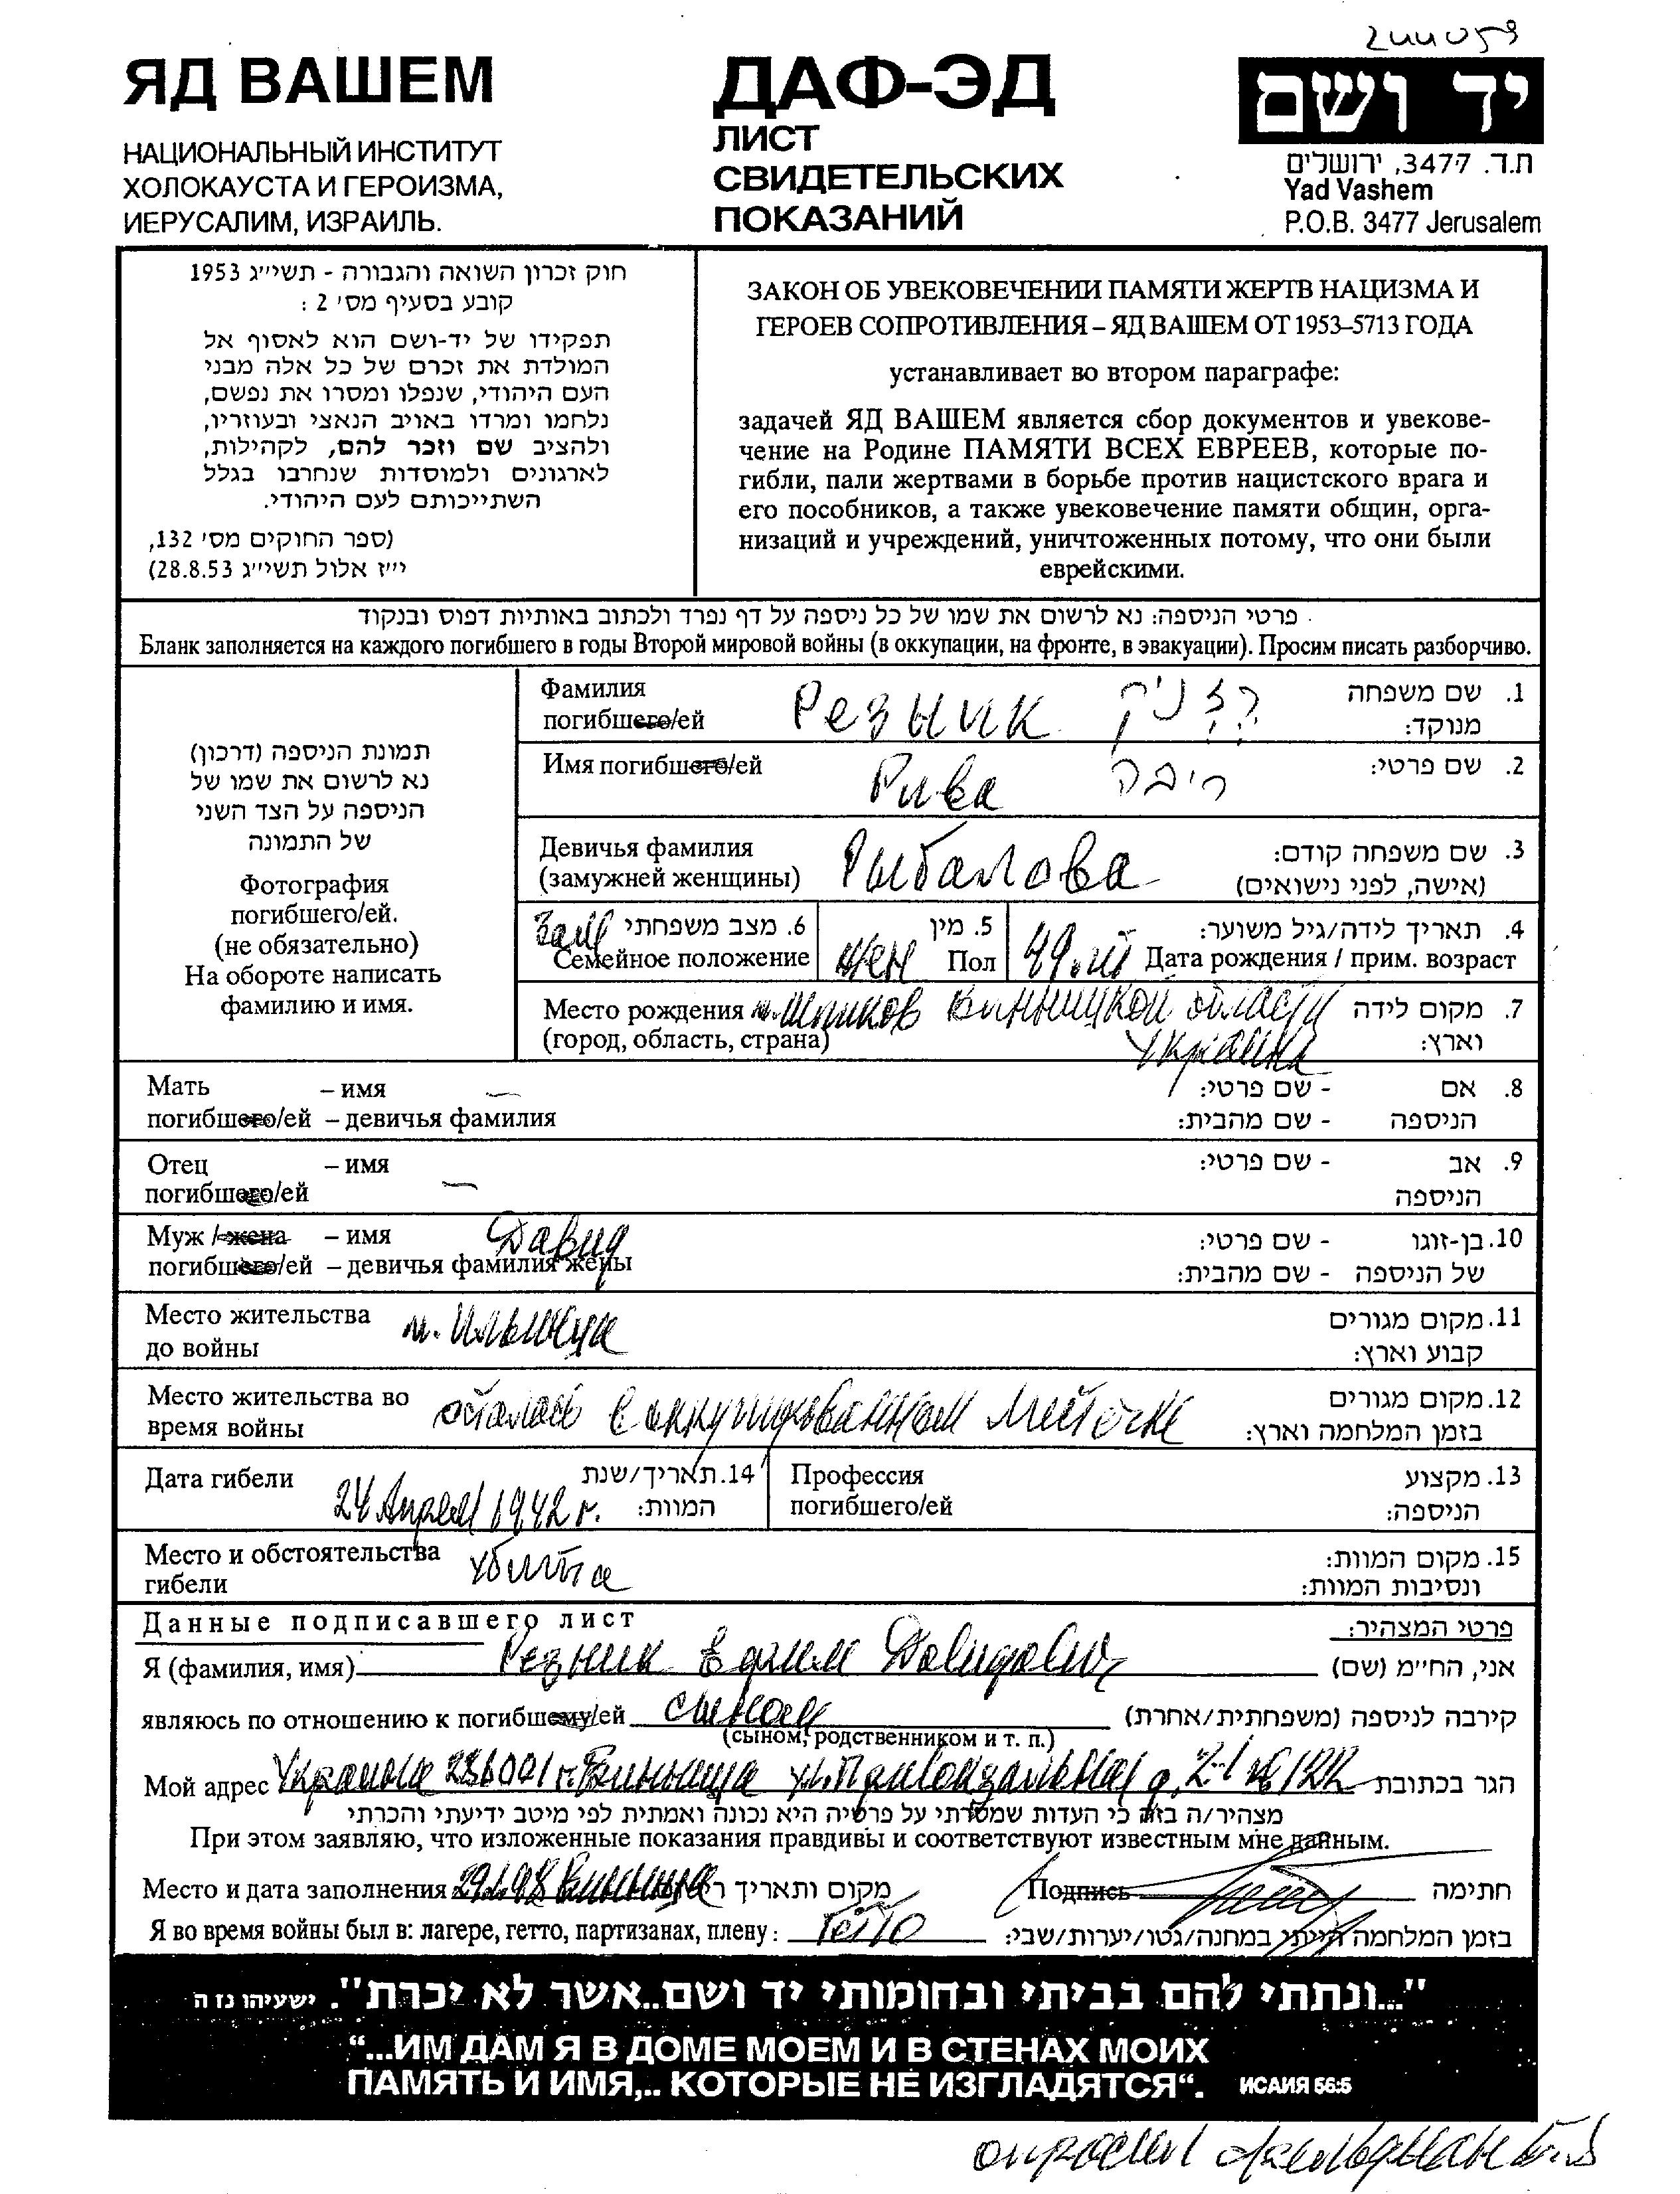 244059
ЯД ВАШЕМ
НАЦИОНАЛЬНЫЙ ИНСТИТУТ
ХОЛОКАУСТА И ГЕРОИЗМА,
ИЕРУСАЛИМ, ИЗРАИЛЬ.
ДАФ-ЭД
ЛИСТ
СВИДЕТЕЛЬСКИХ
ПОКАЗАНИЙ
יד ושם
ת.ד. 3477, ירושלים
Yad Vashem
P.O.B. 3477 Jerusalem
חוק זכרון השואה והגבורה - תשי״ג 1953
קובע בסעיף מס׳ 2 :
תפקידו של יד-ושם הוא לאסוף אל
המולדת את זכרם של כל אלה מבני
העם היהודי, שנפלו ומסרו את נפשם,
נלחמו ומרדו באויב הנאצי ובעוזריו,
ולהציב שם וזכר להם, לקהילות,
לארגונים ולמוסדות שנחרבו בגלל
השתייכותם לעם היהודי.
(ספר החוקים מס׳ 132,
י״ז אלול תשי״ג 28.8.53)
ЗАКОН ОБ УВЕКОВЕЧЕНИИ ПАМЯТИ ЖЕРТВ НАЦИЗМА И
ГЕРОЕВ СОПРОТИВЛЕНИЯ – ЯД ВАШЕМ ОТ 1953–5713 ГОДА
устанавливает во втором параграфе:
задачей ЯД ВАШЕМ является сбор документов и увекове-
чение на Родине ПАМЯТИ ВСЕХ ЕВРЕЕВ, которые по-
гибли, пали жертвами в борьбе против нацистского врага и
его пособников, а также увековечение памяти общин, орга-
низаций и учреждений, уничтоженных потому, что они были
еврейскими.
פרטי הניספה: נא לרשום את שמו של כל ניספה על דף נפרד ולכתוב באותיות דפוס ובנקוד
Бланк заполняется на каждого погибшего в годы Второй мировой войны (в оккупации, на фронте, в эвакуации). Просим писать разборчиво.
תמונת הניספה (דרכון)
נא לרשום את שמו של
הניספה על הצד השני
של התמונה
Фотография
погибшего/ей.
(не обязательно)
На обороте написать
фамилию и имя.
Фамилия 1. שם משפחה
погибшего/ей Резник רזניק מנוקד:
Имя погибшего/ей Рива ריבה 2. שם פרטי:
Девичья фамилия Рыбалова 3. שם משפחה קודם:
(замужней женщины) (אישה, לפני נישואים)
Зам 6. מצב משפחתי 5. מין 4. תאריך לידה/גיל משוער:
Семейное положение жен Пол 49 лет Дата рождения / прим. возраст
Место рождения м. Шпиков Винницкой области 7. מקום לידה
(город, область, страна) Украина וארץ:
Мать – имя — - שם פרטי: 8. אם
погибшего/ей – девичья фамилия - שם מהבית: הניספה
Отец – имя - שם פרטי: 9. אב
погибшего/ей — הניספה
Муж / жена – имя Давид - שם פרטי: 10. בן-זוגו
погибшего/ей – девичья фамилия жены - שם מהבית: של הניספה
Место жительства м. Ильинцы 11. מקום מגורים
до войны קבוע וארץ:
Место жительства во осталась в оккупированном местечке 12. מקום מגורים
время войны בזמן המלחמה וארץ:
Дата гибели 24 Апреля 1942 г. 14. תאריך/שנת המוות:
Профессия 13. מקצוע
погибшего/ей הניספה:
Место и обстоятельства убита 15. מקום המוות:
гибели ונסיבות המוות:
Данные подписавшего лист פרטי המצהיר:
Я (фамилия, имя) Резник Ефим Давидович אני, הח״מ (שם)
являюсь по отношению к погибшему/ей сыном קירבה לניספה (משפחתית/אחרת)
(сыном, родственником и т. п.)
Мой адрес Украина 286001 г. Винница ул. Привокзальная д. 2-1 кв 122 הגר בכתובת
מצהיר/ה בזה כי העדות שמסרתי על פרטיה היא נכונה ואמתית לפי מיטב ידיעתי והכרתי
При этом заявляю, что изложенные показания правдивы и соответствуют известным мне данным.
Место и дата заполнения Винница מקום ותאריך Подпись חתימה
Я во время войны был в: лагере, гетто, партизанах, плену: Гетто בזמן המלחמה הייתי במחנה/גטו/יערות/שבי:
"...ונתתי להם בביתי ובחומותי יד ושם..אשר לא יכרת". ישעיהו נו ה
“...ИМ ДАМ Я В ДОМЕ МОЕМ И В СТЕНАХ МОИХ
ПАМЯТЬ И ИМЯ,.. КОТОРЫЕ НЕ ИЗГЛАДЯТСЯ“. ИСАИЯ 56:5